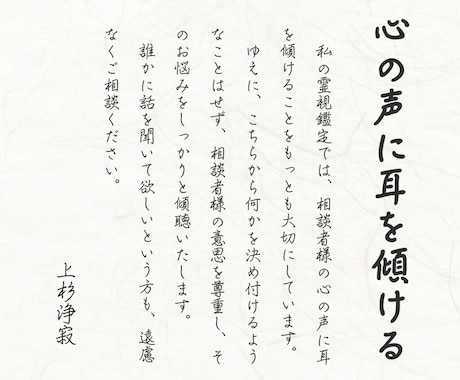 心の声に耳を傾ける
私の霊視鑑定では、相談者様の心の声に耳
を傾けることをもっとも大切にしています。
ゆえに、こちらから何かを決め付けるよう
なことはせず、相談者様の意思を尊重し、そ
のお悩みをしっかりと傾聴いたします。
誰かに話を聞いて欲しいという方も、遠慮
なくご相談ください。
上杉浄寂